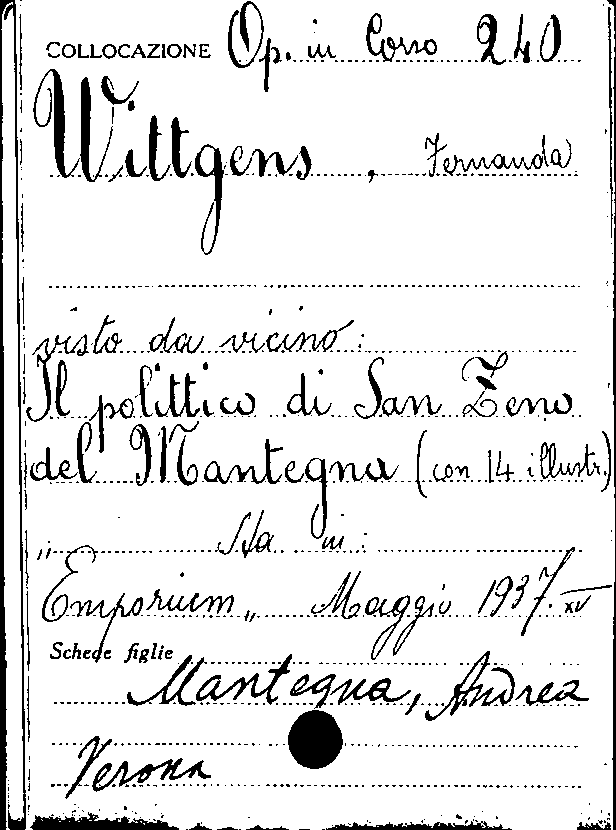 COLLOCAZIONE Op. in Corso 240
Wittgens, Fernanda
visto da vicino:
Il polittico di San Zeno
del Mantegna (con 14 illustr.)
Sta in:
„Emporium„ Maggio 1937. XV
Schede figlie
Mantegna, Andrea
Verona